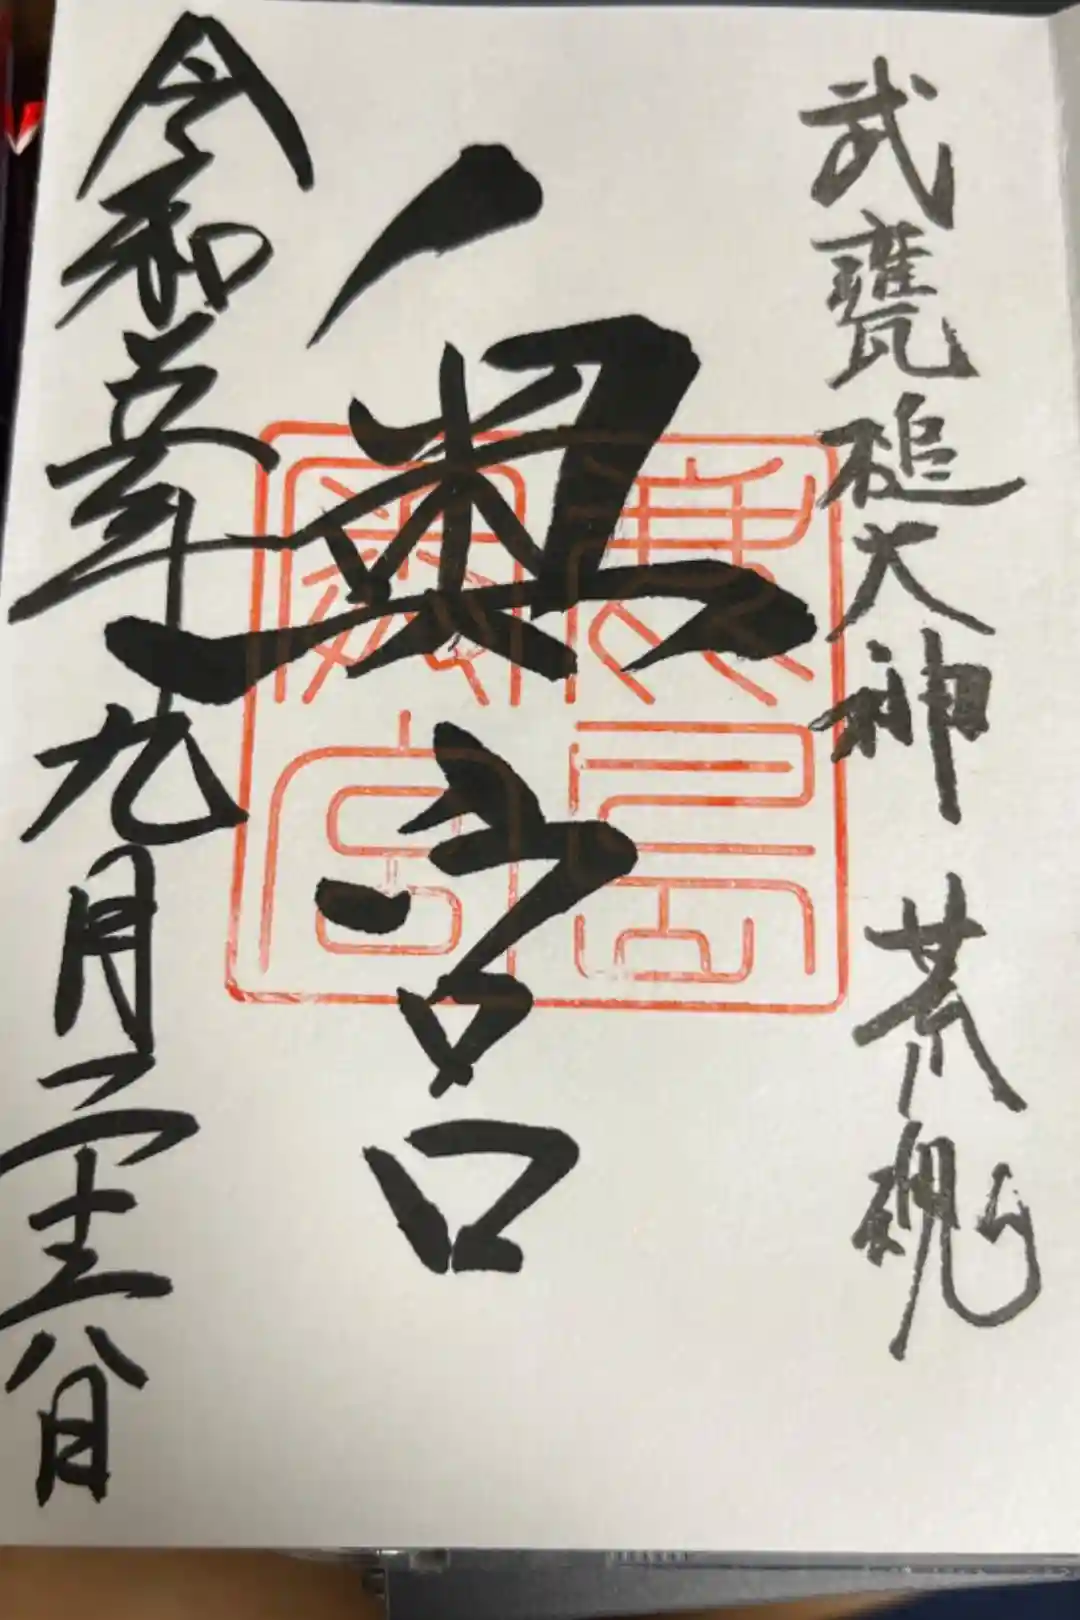 武甕槌大神 荒魂
奥宮
鹿島奥宮
令和六年九月二十六日